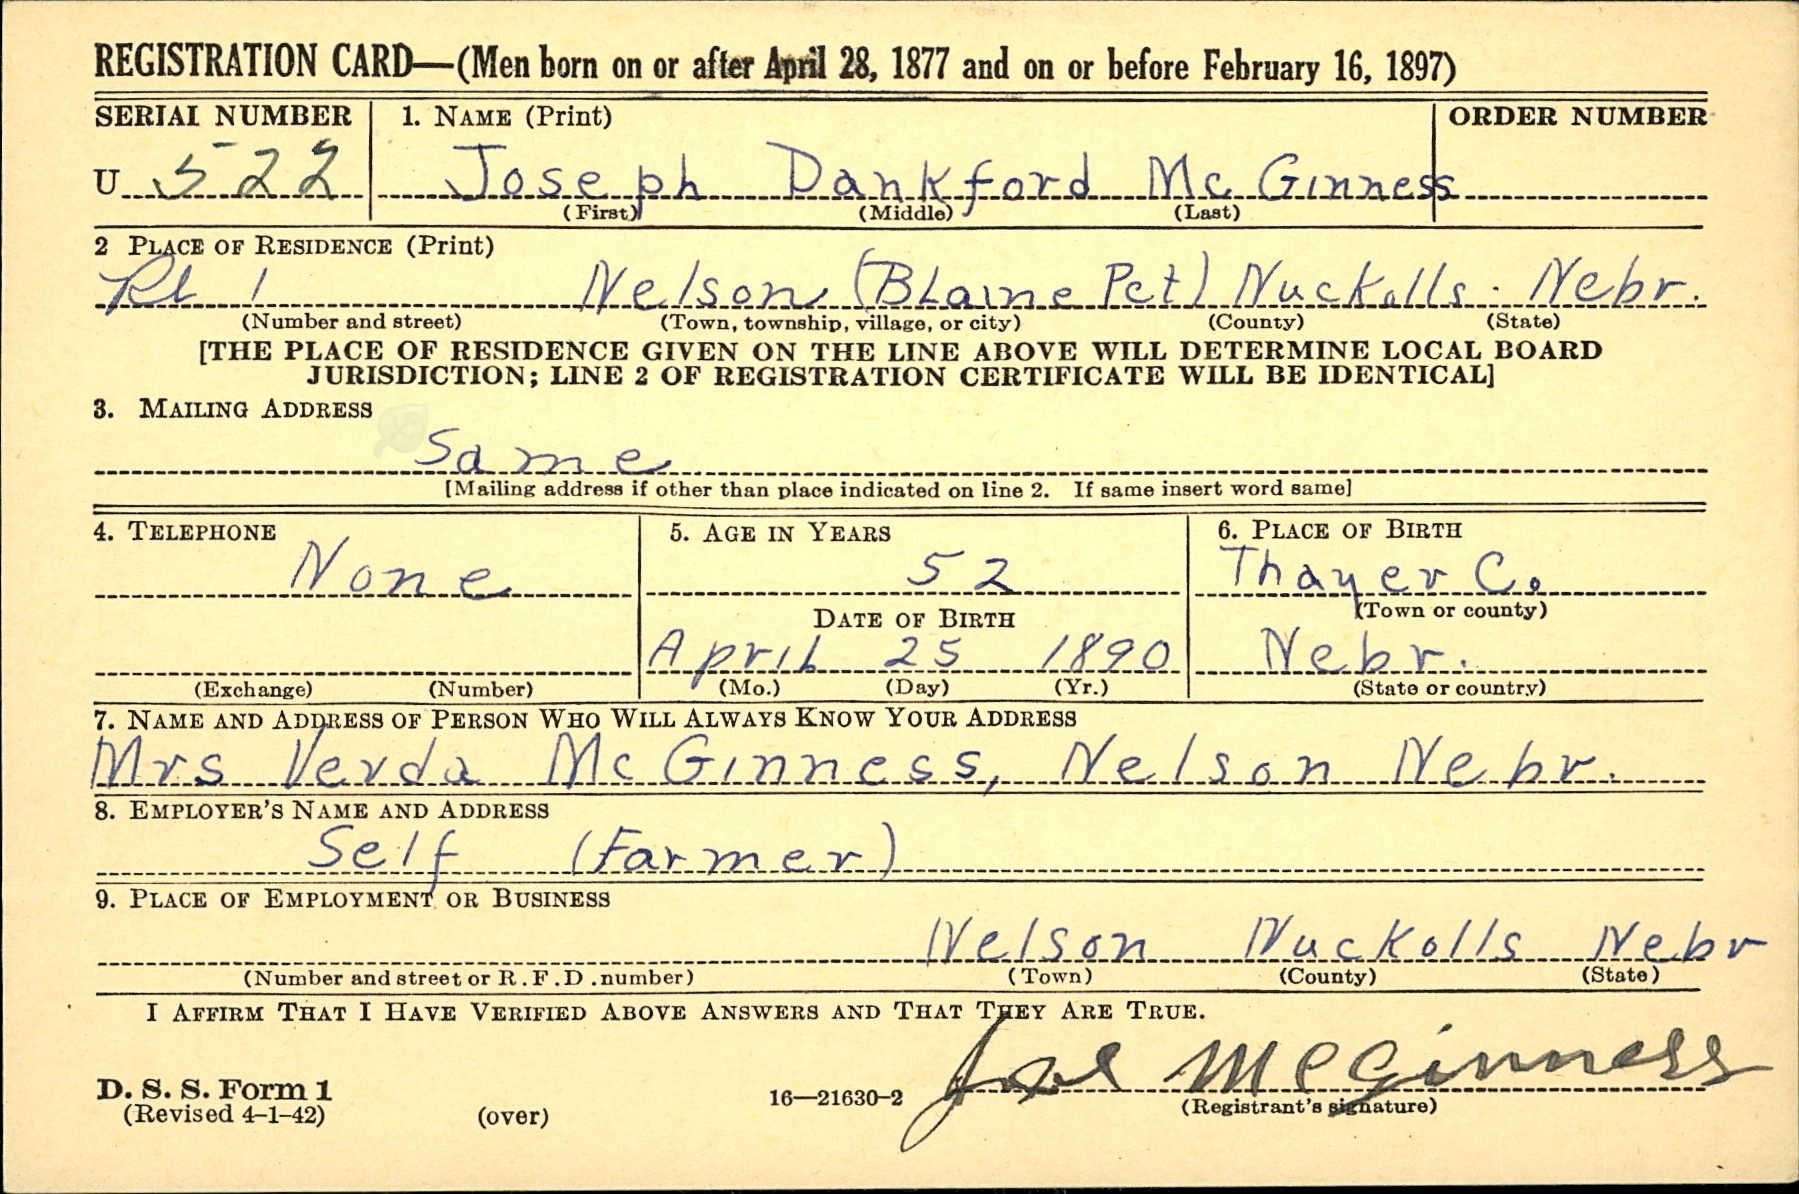 REGISTRATION CARD—(Men born on or after April 28, 1877 and on or before February 16, 1897)
SERIAL NUMBER 1. NAME (Print) ORDER NUMBER
U 522 Joseph Dankford Mc Ginness
(First) (Middle) (Last)
2 PLACE OF RESIDENCE (Print)
Rt 1 Nelson (Blaine Pct) Nuckolls. Nebr.
(Number and street) (Town, township, village, or city) (County) (State)
[THE PLACE OF RESIDENCE GIVEN ON THE LINE ABOVE WILL DETERMINE LOCAL BOARD
JURISDICTION; LINE 2 OF REGISTRATION CERTIFICATE WILL BE IDENTICAL]
3. MAILING ADDRESS
Same
[Mailing address if other than place indicated on line 2. If same insert word same]
4. TELEPHONE 5. AGE IN YEARS 6. PLACE OF BIRTH
None 52 Thayer Co.
DATE OF BIRTH (Town or county)
April 25 1890 Nebr.
(Exchange) (Number) (Mo.) (Day) (Yr.) (State or country)
7. NAME AND ADDRESS OF PERSON WHO WILL ALWAYS KNOW YOUR ADDRESS
Mrs Verda Mc Ginness, Nelson Nebr.
8. EMPLOYER'S NAME AND ADDRESS
Self (Farmer)
9. PLACE OF EMPLOYMENT OR BUSINESS
Nelson Nuckolls Nebr
(Number and street or R. F. D. number) (Town) (County) (State)
I AFFIRM THAT I HAVE VERIFIED ABOVE ANSWERS AND THAT THEY ARE TRUE.
Joe McGinness
D. S. S. Form 1 16—21630-2 (Registrant's signature)
(Revised 4-1-42) (over)